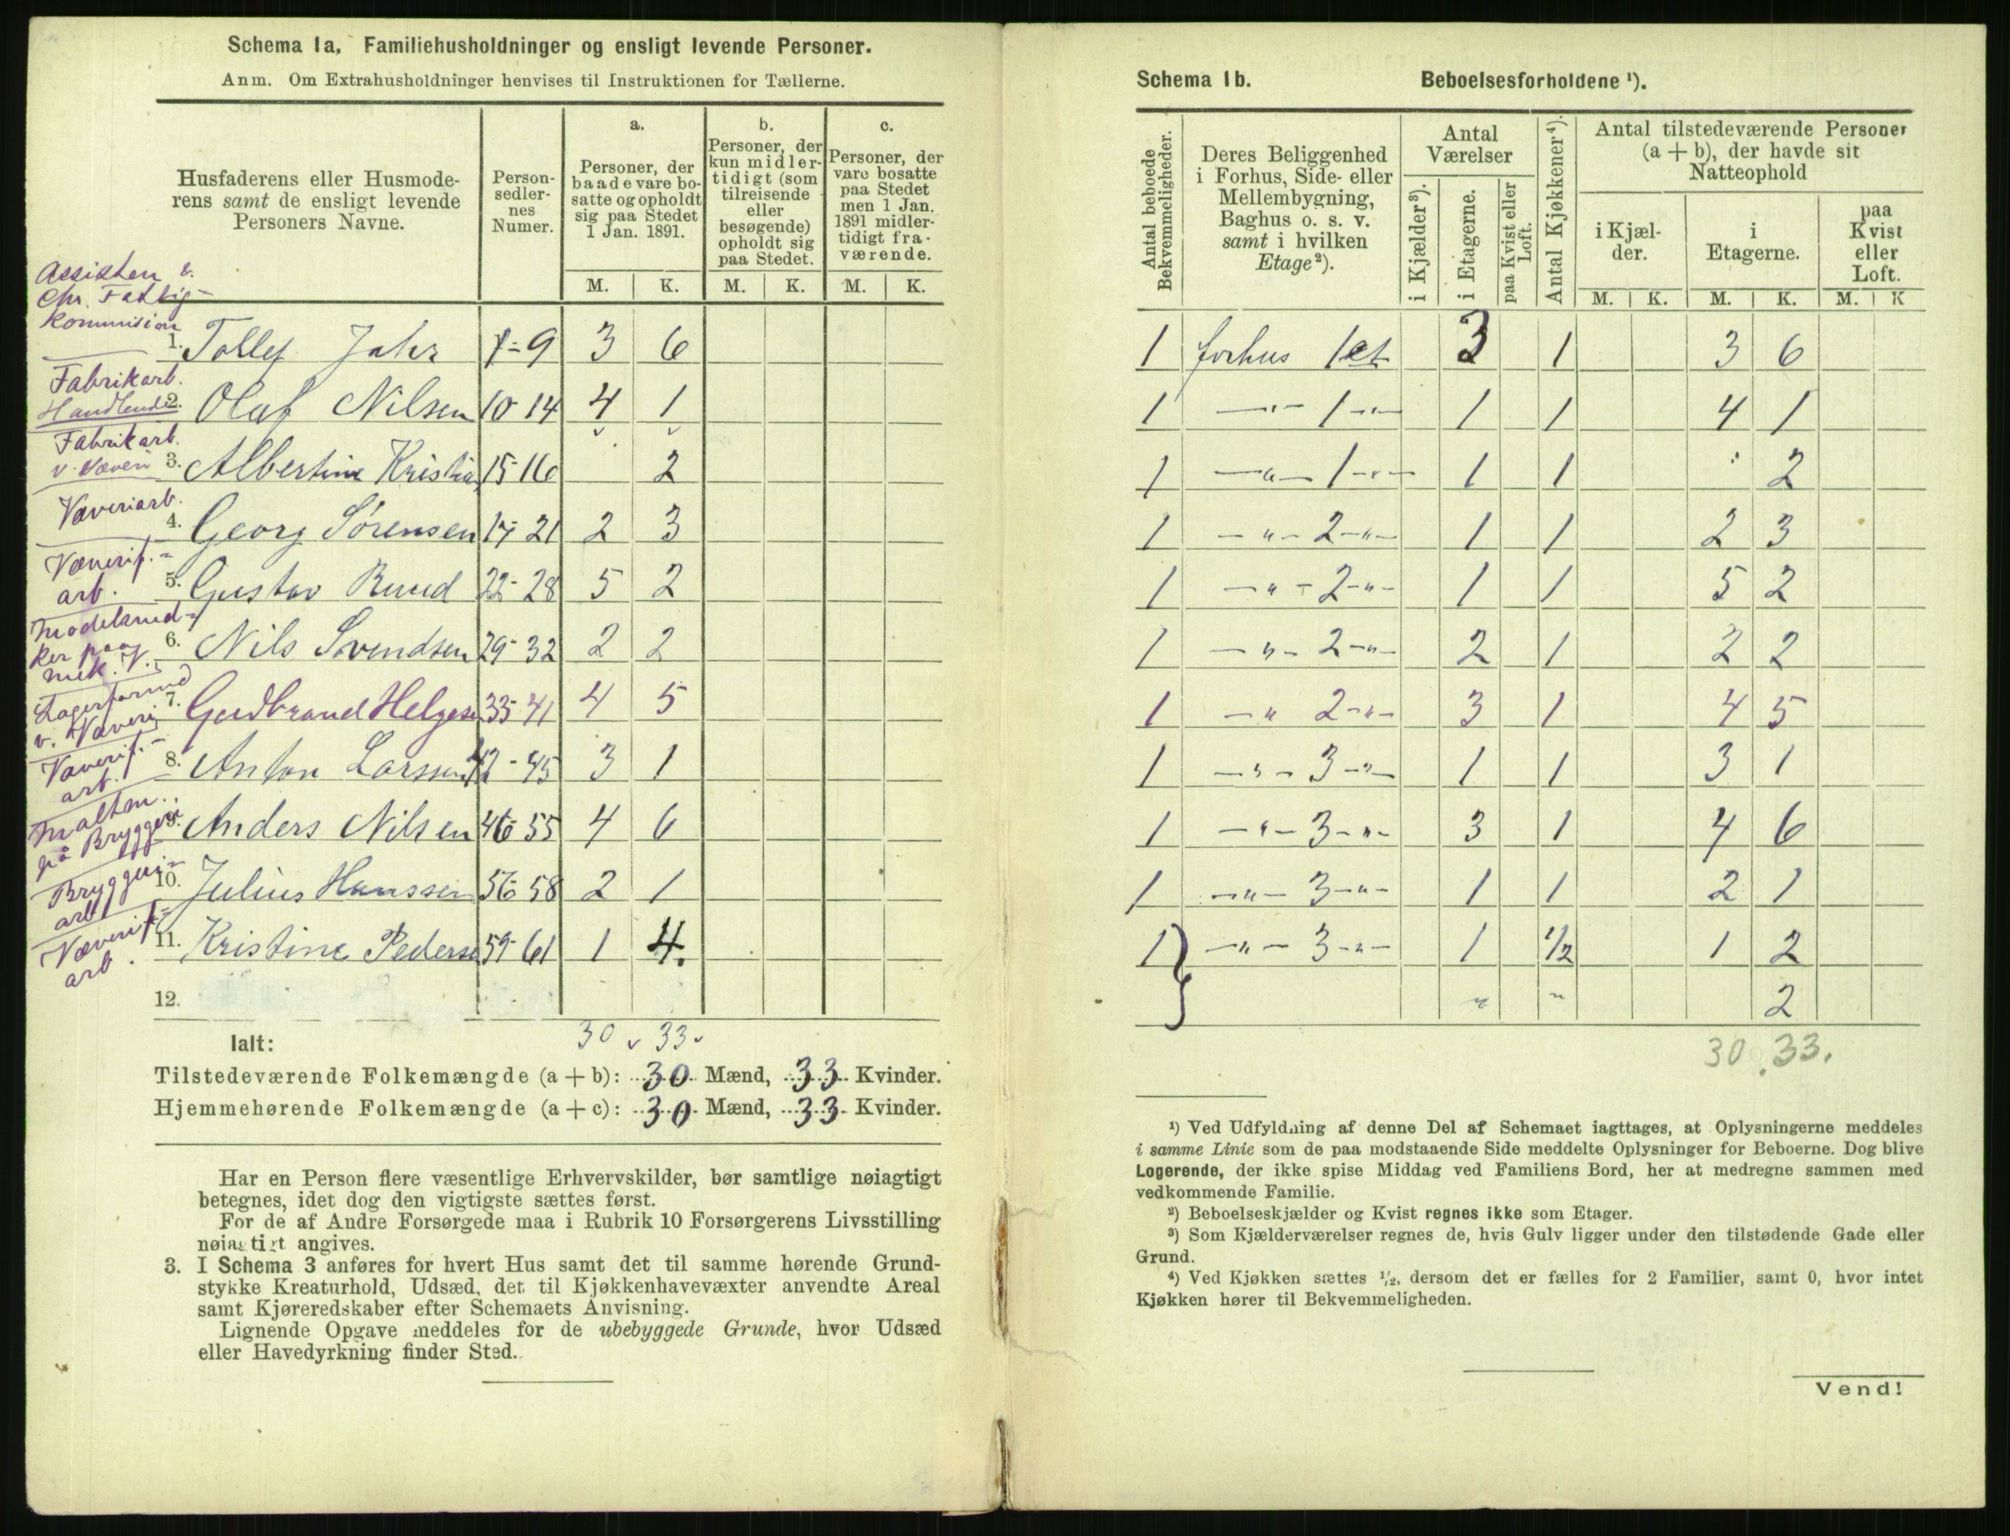 Schema 1a. Familiehusholdninger og ensligt levende Personer.
Anm. Om Extrahusholdninger henvises til Instruktionen for Tællerne.
Husfaderens eller Husmode-
rens samt de ensligt levende
Personers Navne.
Person-
sedler-
nes
Numer.
a.
Personer, der
baade vare bo-
satte og opholdt
sig paa Stedet
1 Jan. 1891.
b.
Personer, der
kun midler-
tidigt (som
tilreisende
eller
besøgende)
opholdt sig
paa Stedet.
c.
Personer, der
vare bosatte
paa Stedet
men 1 Jan.
1891 midler-
tidigt fra-
værende.
M. K. M. K. M. K.
Assistent v.
Chr. Fattig-
kommision
1. Tollef Jahr 1-9 3 6
Fabrikarb.
Handlende
2. Olaf Nilsen 10-14 4 1
Fabrikarb.
v. Væveri
3. Albertine Kristia 15-16 2
Væveriarb.
4. Georg Sørensen 17-21 2 3
Væverif.-
arb.
5. Gustav Ruud 22-28 5 2
Modelsned-
ker paa
mek. V.
6. Nils Svendsen 29-32 2 2
Lagerformd
v. Væveri
7. Gudbrand Helgesen 33-41 4 5
Væverif.-
arb.
8. Anton Larssen 42-45 3 1
Malten..
på Bryggeri
9. Anders Nilsen 46-55 4 6
Bryggeri-
arb.
10. Julius Hanssen 56-58 2 1
Væverif-
arb.
11. Kristine Pederse 59-61 1 4.
12.
Ialt: 30 33
Tilstedeværende Folkemængde (a + b): 30 Mænd, 33 Kvinder.
Hjemmehørende Folkemængde (a + c): 30 Mænd, 33 Kvinder.
Har en Person flere væsentlige Erhvervskilder, bør samtlige nøiagtigt
betegnes, idet dog den vigtigste sættes først.
For de af Andre Forsørgede maa i Rubrik 10 Forsørgerens Livsstilling
nøiagtigt angives.
3. I Schema 3 anføres for hvert Hus samt det til samme hørende Grund-
stykke Kreaturhold, Udsæd, det til Kjøkkenhavevæxter anvendte Areal
samt Kjøreredskaber efter Schemaets Anvisning.
Lignende Opgave meddeles for de ubebyggede Grunde, hvor Udsæd
eller Havedyrkning finder Sted.
Schema 1b. Beboelsesforholdene ¹).
Antal beboede
Bekvemmeligheder.
Deres Beliggenhed
i Forhus, Side- eller
Mellembygning,
Baghus o. s. v.
samt i hvilken
Etage²).
Antal
Værelser
i Kjælder³).
i Etagerne.
paa Kvist eller
Loft.
Antal Kjøkkener⁴).
Antal tilstedeværende Personer
(a + b), der havde sit
Natteophold
i Kjæl-
der.
i
Etagerne.
paa
Kvist
eller
Loft.
M. K. M. K. M. K
1 forhus 1 et 3 1 3 6
1 -"- 1 -"- 1 1 4 1
1 -"- 1 -"- 1 1 2
1 -"- 2 -"- 1 1 2 3
1 -"- 2 -"- 1 1 5 2
1 -"- 2 -"- 2 1 2 2
1 -" 2 -"- 3 1 4 5
1 -"- 3 -"- 1 1 3 1
1 -"- 3 -"- 3 1 4 6
1 -"- 3 -"- 1 1 2 1
1 } -"- 3 -"- 1 1/2 1 2
" " 2
30. 33.
¹) Ved Udfyldning af denne Del af Schemaet iagttages, at Oplysningerne meddeles
i samme Linie som de paa modstaaende Side meddelte Oplysninger for Beboerne. Dog blive
Logerende, der ikke spise Middag ved Familiens Bord, her at medregne sammen med
vedkommende Familie.
²) Beboelseskjælder og Kvist regnes ikke som Etager.
³) Som Kjælderværelser regnes de, hvis Gulv ligger under den tilstødende Gade eller
Grund.
⁴) Ved Kjøkken sættes ½, dersom det er fælles for 2 Familier, samt 0, hvor intet
Kjøkken hører til Bekvemmeligheden.
Vend!